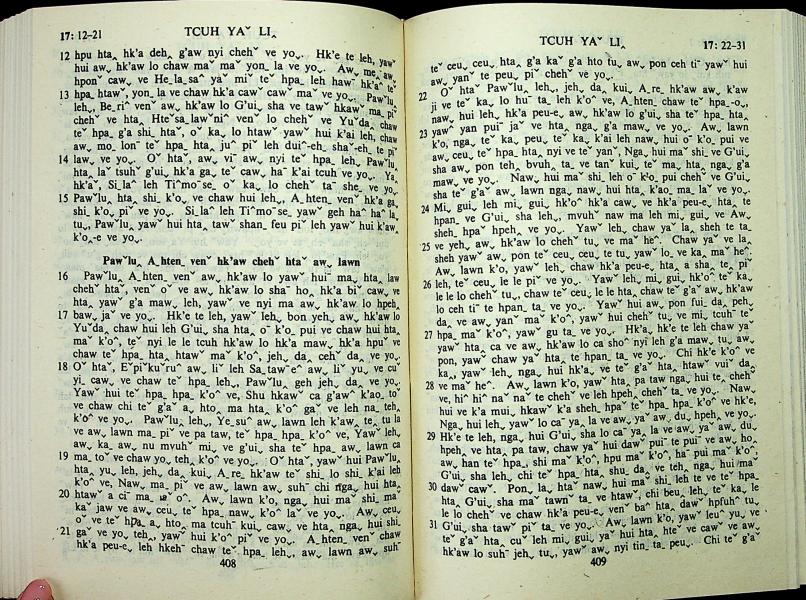 17: 12-21
TCUH YAˇ LI‸
12 hpu hta˰ hk'a deh˰ g'aw nyi chehˇ ve yo˰. Hk'e te leh, yawˇ
hui aw˰ hk'aw lo chaw maˇ maˇ yon˰ la ve yo˰. Aw˰ me˰ aw˰
hpon¯ caw˰ ve He˰la˰saˆ yaˇ miˇ teˇ hpa˰ leh hawˇ hk'aˆ teˇ
13 hpa˰ htawˇ, yon˰la ve chaw hk'aˇ cawˇ cawˇ maˇ ve yo˰. Pawˇlu˰
leh˰, Be˰riˆ venˇ aw˰ hk'aw lo G'ui˰ sha ve tawˇ hkaw˰ ma˰ pi˰
chehˇ ve hta˰ Hteˇsa˰lawˇniˆ venˇ lo chehˇ ve Yuˇda˰ chaw
teˇ hpa˰ g'a shi˰ htaˇ, oˇ ka˰ lo htawˇ yawˇ hui k'ai leh, chaw
aw˰ mo˰ lonˇ te hpa˰ hta˰ juˆ piˇ leh duiˆ-eh˰ shaˇ-eh˰ te piˇ
14 law˰ ve yo˰. Oˇ htaˇ, aw˰ viˇ aw˰ nyi teˇ hpa˰ leh, Pawˇlu˰
hta˰ laˇ tsuhˇ g'ui˰ hk'a ga˰ teˇ caw˰ haˇ k'ai tcuh ve yo˰. Ya˰
hk'aˇ, Si˰laˆ leh Tiˆmoˇse˰ oˇ ka˰ lo chehˇ taˇ she˰ ve yo˰.
15 Pawˇlu˰ hta˰ shi˰ k'o˰ ve chaw hui leh˰, A˰hten˰ venˇ hk'a ga˰
shi˰ k'o˰ piˇ ve yo˰. Si˰laˆ leh Tiˆmoˇse˰ yawˇ geh haˆ haˆ la˰
tu˰, Pawˇlu˰ yawˇ hui hta˰ tawˇ shan˰ feu pi leh yawˇ hui k'aw˰
k'o˰-e ve yo˰.
Pawˇlu˰ A˰hten˰ venˇ hk'aw chehˇ htaˇ aw˰ lawn
16 Pawˇlu˰ A˰hten˰ venˇ aw˰ hk'aw lo yawˇ huiˇ ma˰ hta˰ law
chehˇ htaˇ, venˇ oˇ ve aw˰ hk'aw lo shaˇ ho˰ hk'a biˇ caw˰ ve
hta˰ yawˇ g'a maw˰ leh, yawˇ ve nyi ma aw˰ hk'aw lo hpeh˰
17 baw˰ jaˇ ve yo˰. Hk'e te leh, yawˇ leh˰ bon yeh˰ aw˰ hk'aw lo
Yuˇda˰ chaw hui leh G'ui˰ sha hta˰ oˇ k'o˰ pui ve chaw hui hta˰
maˇ k'oˆ, teˇ nyi le le tcuh hk'aw lo hk'a maw˰ hk'a hpuˇ ve
chaw teˇ hpa˰ hta˰ htawˇ maˇ k'oˆ, jeh˰ da˰ cehˇ da˰ ve yo˰.
18 Oˇ htaˇ, Eˇpiˇkuˇruˆ aw˰ liˇ leh Sa˰tawˇeˆ aw˰ liˇ yu˰ ve cuˇ
yi˰ caw˰ ve chaw teˇ hpa˰ leh˰, Pawˇlu˰ geh jeh˰ da˰ ve yo˰.
Yawˇ hui teˇ hpa˰ hpa˰ k'oˆ ve, Shu hkawˇ ca g'awˇ k'ao˰ toˇ
ve chaw chi teˇ g'aˇ a˰ hto˰ ma hta˰ k'oˆ gaˇ ve leh na˰ teh˰
k'oˆ ve yo˰. Pawˇlu˰ leh˰, Ye˰suˆ aw˰ lawn leh k'aw˰ te˰ tu la
ve aw˰ lawn ma˰ piˇ ve pa taw, teˇ hpa˰ hpa˰ k'oˆ ve, Yawˇ leh˰
aw˰ ka˰ aw˰ nu mvuhˇ mi˰ ve g'ui˰ sha teˇ hpa˰ aw˰ lawn ca
19 ma˰ toˇ ve chaw yo˰ teh˰ k'oˆ ve yo˰. Oˇ htaˇ, yawˇ hui Pawˇlu˰
hta˰ yu˰ leh, jeh˰ da˰ kui˰ A˰re˰ hk'aw teˇ shi˰ lo shi˰ k'ai leh
k'oˆ ve, Naw˰ ma˰ piˇ ve aw˰ lawn aw˰ suhˇ chi nga˰ hui hta˰
20 htawˇ a ciˇ ma˰ oˆ. Aw˰ lawn k'o, nga˰ hui maˇ shi˰ maˇ
kaˇ jaw ve aw˰ ceu˰ teˇ hpa˰ naw˰ k'oˆ laˇ ve yo˰. Aw˰ ceu˰
oˇ ve teˇ hpa˰ a˰ hto˰ ma tcuhˇ caw˰ ve hta˰ nga˰ hui shi˰
21 gaˇ ve yo˰ teh˰ yawˇ hui k'oˆ piˇ ve yo˰. A˰hten˰ venˇ chaw
hk'a peu-e˰ leh hkehˇ chaw teˇ hpa˰ leh˰, aw˰ lawn aw˰ suhˇ
408
TCUH YAˇ LI‸
17: 22-31
teˇ ceu˰ ceu˰ hta˰ g'a kaˇ g'a hto tu˰ aw˰ pon ceh tiˇ yawˇ hui
aw˰ yanˇ te peu˰ piˇ chehˇ ve yo˰.
22 Oˇ htaˇ Pawˇlu˰ leh˰, jeh˰ da˰ kui˰ A˰re˰ hk'aw aw˰ k'aw
ji ve teˇ ka˰ lo huˇ ta˰ leh k'oˆ ve, A˰hten˰ chaw teˇ hpa˰-o˰,
naw˰ hui leh˰ hk'a peu-e˰ aw˰ hk'aw lo g'ui˰ sha teˇ hpa˰ hta˰
23 yawˆ yan pui jaˇ ve hta˰ nga˰ g'a maw˰ ve yo˰. Aw˰ lawn
k'o, nga˰ teˇ ka˰ peu˰ teˇ ka˰ k'ai leh naw˰ hui oˇ k'o˰ pui ve
aw˰ ceu˰ teˇ hpa˰ hta˰ nyi ve te yanˇ, Nga˰ hui maˇ shi˰ ve G'ui˰
sha aw˰ pon teh˰ bvuh˰ ta˰ ve tanˇ kui˰ teˇ ma hta˰ nga˰ g'a
maw˰ ve yo˰. Naw˰ hui maˇ shi˰ leh oˇ k'o˰ pui chehˇ ve G'ui˰
sha teˇ g'aˇ aw˰ lawn nga˰ naw˰ hui hta˰ k'ao˰ ma˰ laˇ ve yo˰.
24 Mi˰ gui˰ leh mi˰ gui˰ hk'oˆ hk'a caw˰ ve hk'a peu-e˰ hta˰ te
hpan˰ ve G'ui˰ sha leh˰, mvuhˇ naw ma leh mi˰ gui˰ ve Aw˰
sheh˰ hpaˇ hpeh˰ ve yo˰. Yawˇ leh˰ chaw yaˇ la˰ sheh te ta˰
25 ve yeh˰ aw˰ hk'aw lo chehˇ tu˰ ve maˇ heˆ. Chaw yaˇ ve la˰
sheh yawˇ aw˰ pon teˇ ceu˰ ceu˰ te tu˰ yawˇ lo˰ ve ka˰ maˇ heˆ.
Aw˰ lawn k'o, yawˇ leh˰ chaw hk'a peu-e˰ hta˰ a sha˰ te˰ piˇ
26 leh, teˇ ceu˰ le le piˇ ve yo˰. Yawˇ leh˰ mi˰ gui˰ hk'oˆ teˇ ka˰
le le lo chehˇ tu˰, chaw teˇ ceu˰ le le hta˰ chaw teˇ g'aˇ aw˰ hk'aw
lo ceh tiˇ te hpan ta˰ ve yo˰. Yawˇ hui aw˰ pon fui˰ da˰ peh˰
da˰ ve aw˰ yanˇ maˇ k'oˆ, yawˇ hui chehˇ tu˰ ve mi˰ tcuhˇ teˇ
27 hpa˰ maˇ k'oˆ, yawˇ gu ta˰ ve yo˰. Hk'a˰ hk'e te leh chaw yaˇ
yawˇ hta˰ ca ve aw˰ hk'aw lo ca shoˇ nyi leh g'a maw˰ tu˰ aw˰
pon, yawˇ chaw yaˇ hta˰ te hpan ta˰ ve yo˰. Chi hk'e k'oˆ ve
ka˰, yawˇ leh˰ nga˰ hui hk'a˰ ve teˇ g'aˇ hta˰ htawˇ vuiˇ da˰
28 ve maˇ heˆ. Aw˰ lawn k'o, yawˇ hta˰ pa taw nga˰ hui te˰ chehˇ
ve, hiˆ hiˆ naˇ naˇ te chehˇ ve leh hpeh˰ chehˇ ta˰ ve yo˰. Naw˰
hui ve k'a mui˰ hkawˇ k'a sheh˰ hpaˇ teˇ hpa˰ hpa˰ k'oˆ ve hk'e,
Nga˰ hui leh˰ yawˇ lo caˇ ya˰ la ve aw˰ yaˇ aw˰ du˰ hpeh˰ ve yo˰.
29 Hk'e te leh, nga˰ hui G'ui˰ sha lo caˇ ya˰ la ve aw˰ yaˇ aw˰ du˰
hpeh˰ ve hta˰ pa taw, chaw yaˇ hui dawˇ puiˇ te puiˇ ve aw˰ ho˰
aw˰ han teˇ hpa˰ shi maˇ k'oˆ, hpu maˇ k'oˆ, haˇ pui maˇ k'oˆ,
G'ui˰ sha leh˰ chi teˇ hpa˰ hta˰ shu˰ da˰ ve teh˰ nga˰ hui maˇ
30 dawˇ cawˇ. Pon˰ la˰ htaˇ naw˰ hui maˇ shi˰ leh te ve teˇ hpa˰
hta˰ G'ui˰ sha maˇ tawnˇ ta˰ ve htawˇ, chi beu˰ leh˰ teˇ ka˰ le
le lo chehˇ ve chaw hk'a peu-e˰ venˇ baˇ hta˰ dawˇ hpfuhˇ tu˰
31 G'ui˰ sha tawˇ piˇ ta˰ ve yo˰. Aw˰ lawn k'o, yawˇ leuˇ yu˰ ve
teˇ g'aˇ hta˰ cuˇ leh mi˰ gui˰ yaˇ hui hta˰ hteˇ ve cawˇ ve aw˰
hk'aw lo suhˇ jeh˰ tu˰, yawˇ aw˰ nyi tin˰ ta˰ peu˰. Chi teˇ g'aˇ
409